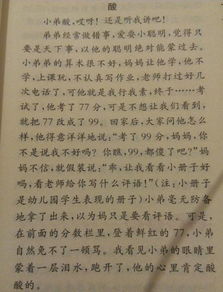 酸
小弟酸,哎呀!还是听我讲吧!
弟弟经常做错事,爱耍小聪明,觉得只
要是天下事,以他的聪明绝对能蒙过去。
小弟弟的算术很不好,妈妈让他学,他不
学,上课玩,不认真写作业,老师打过好几
次电话了,可他就是我行我素,终于……考
试了,他考了77分,可是不想让我们看到,
就把77改成了99。回家后,大家问他怎么
样,他得意洋洋地说:“考了99分,妈妈,你
不是说我不好吗?你瞧,99,都傻了吧?”妈妈
不信,就假装说:“乖,让我看看小册子好
吗,看老师给你写什么评语!”(注:小册子
是幼儿园学生表现的册子)小弟毫无防备
地拿了出来,以为妈只是要看评语。可是,
在前面的分数栏里,登着鲜红的77,小弟
自然免不了一顿骂。我看见小弟的眼睛里
蒙着一层泪水,跑开了,他的心里肯定酸
酸的。